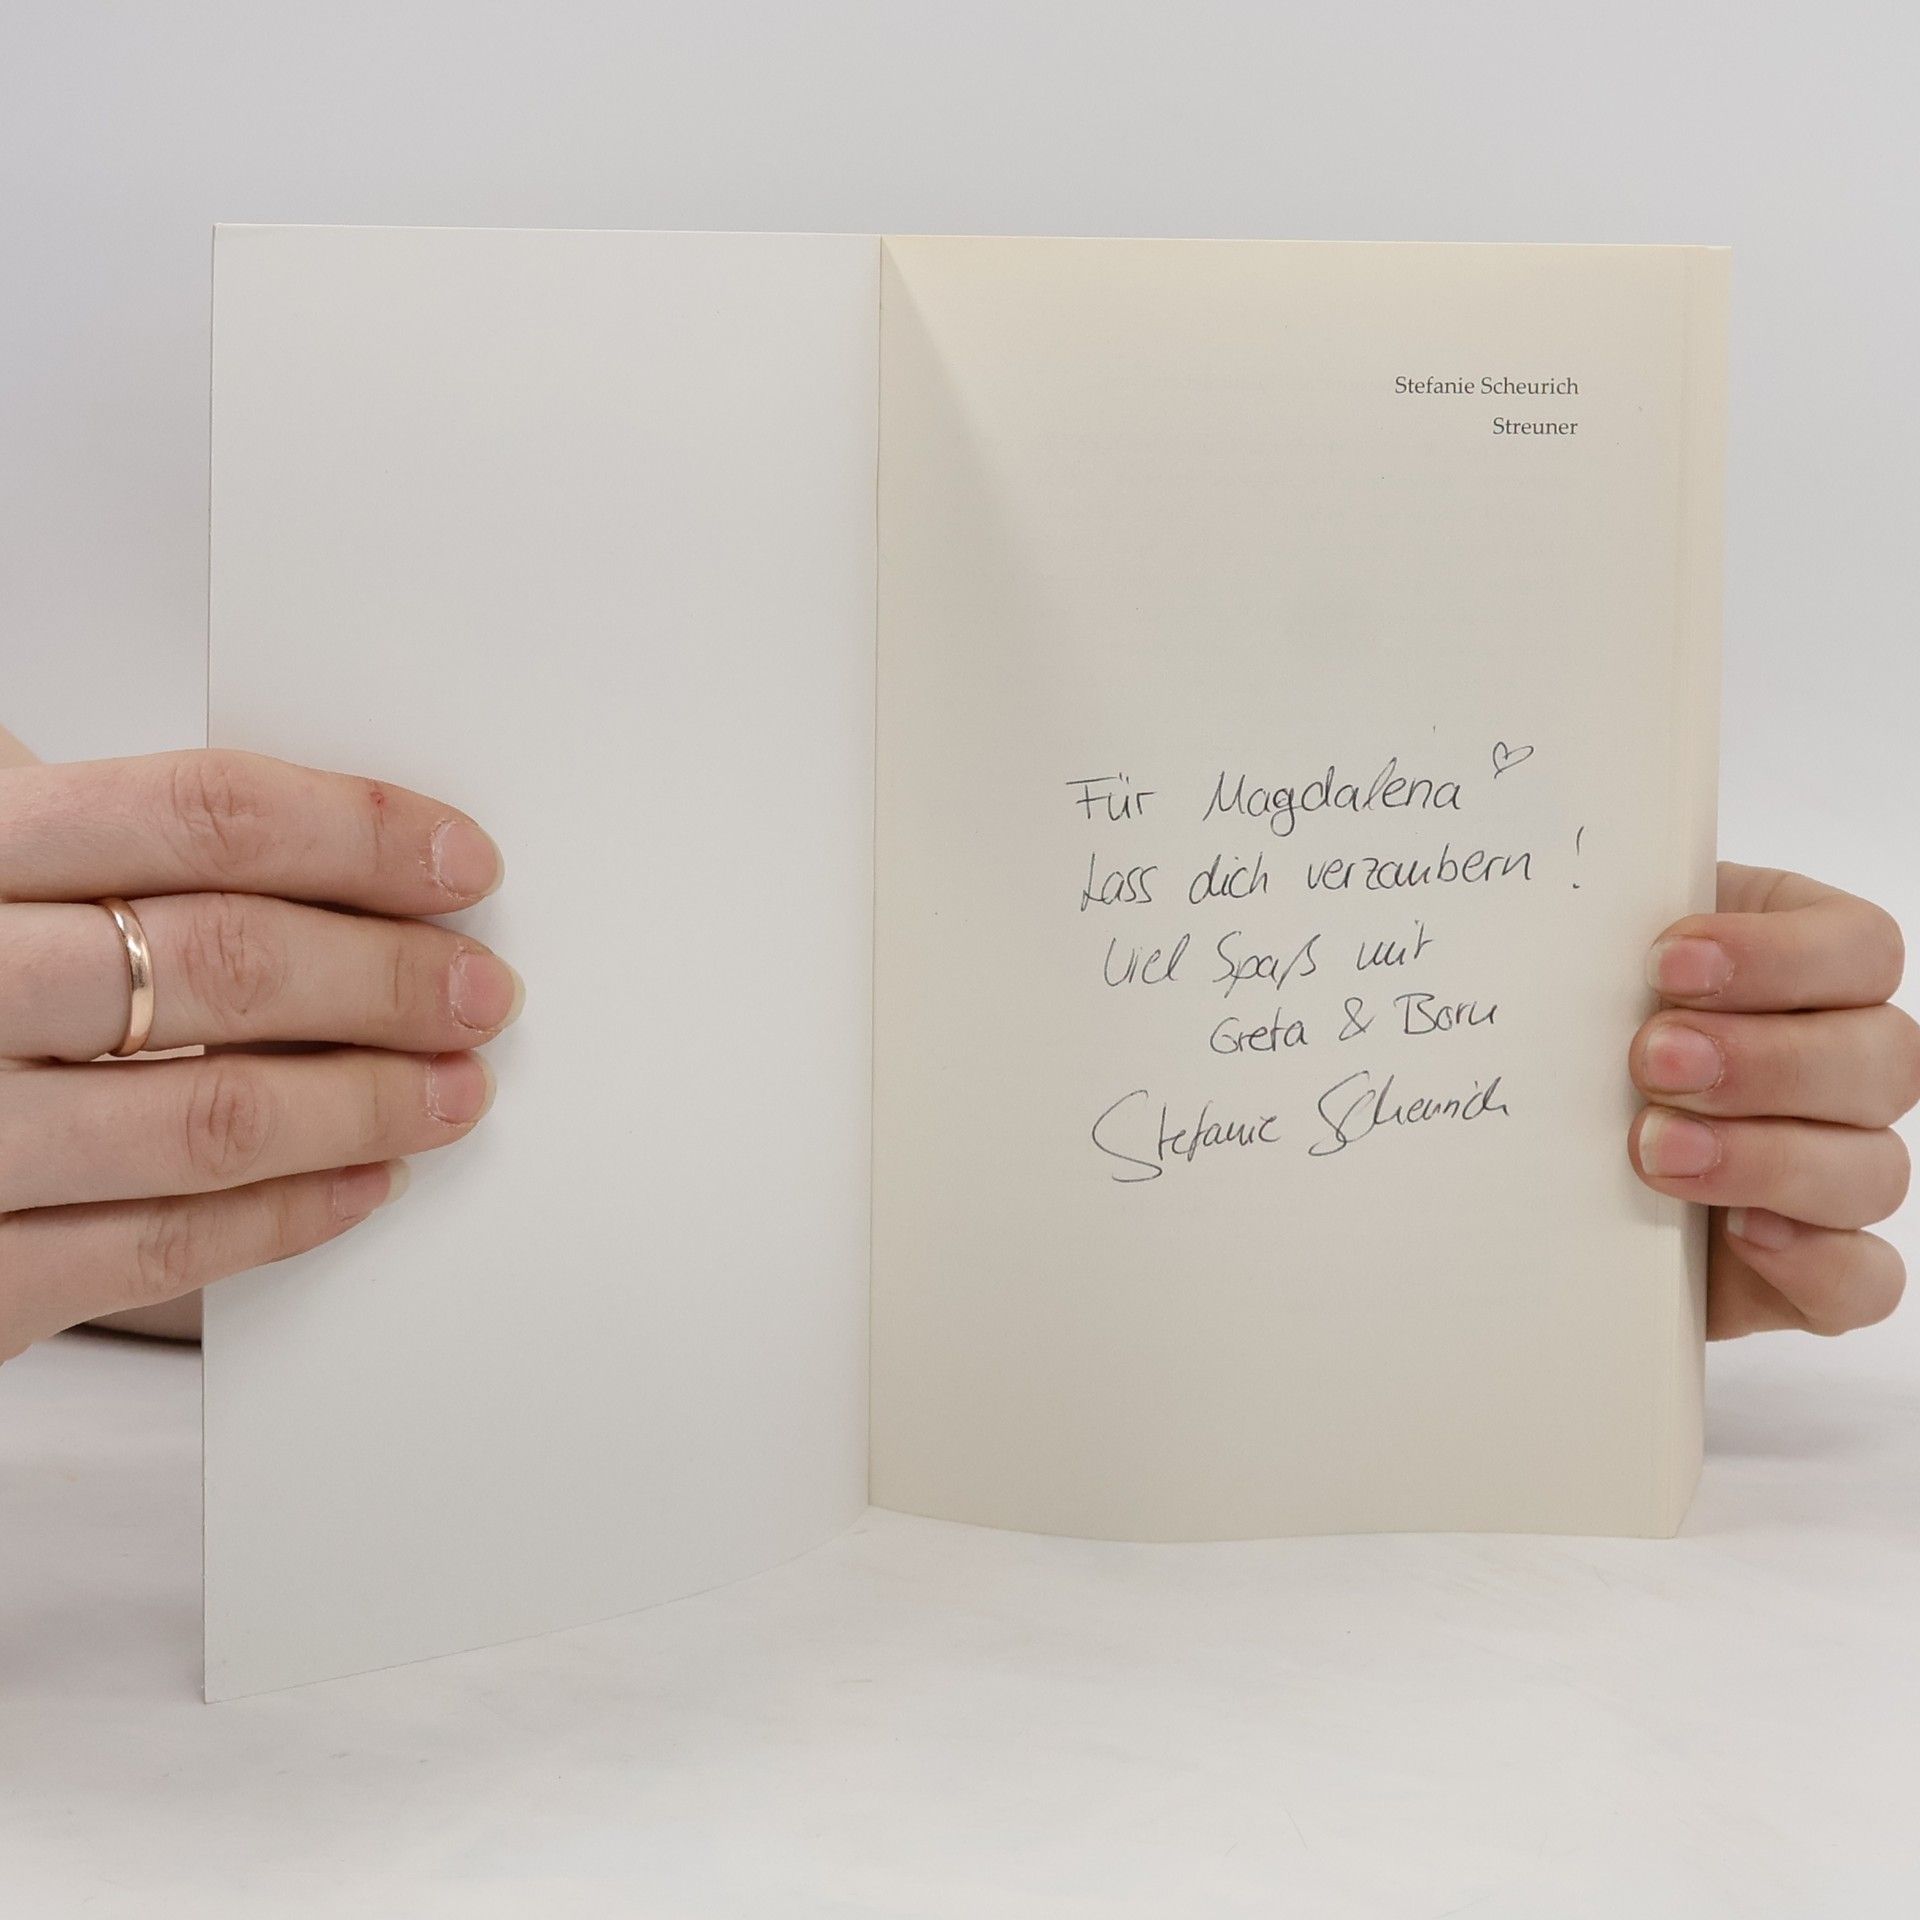 Stefanie Scheurich
Streuner
Für Magdalena ♡
Lass dich verzaubern!
Viel Spaß mit
Greta & Boru
Stefanie Scheurich